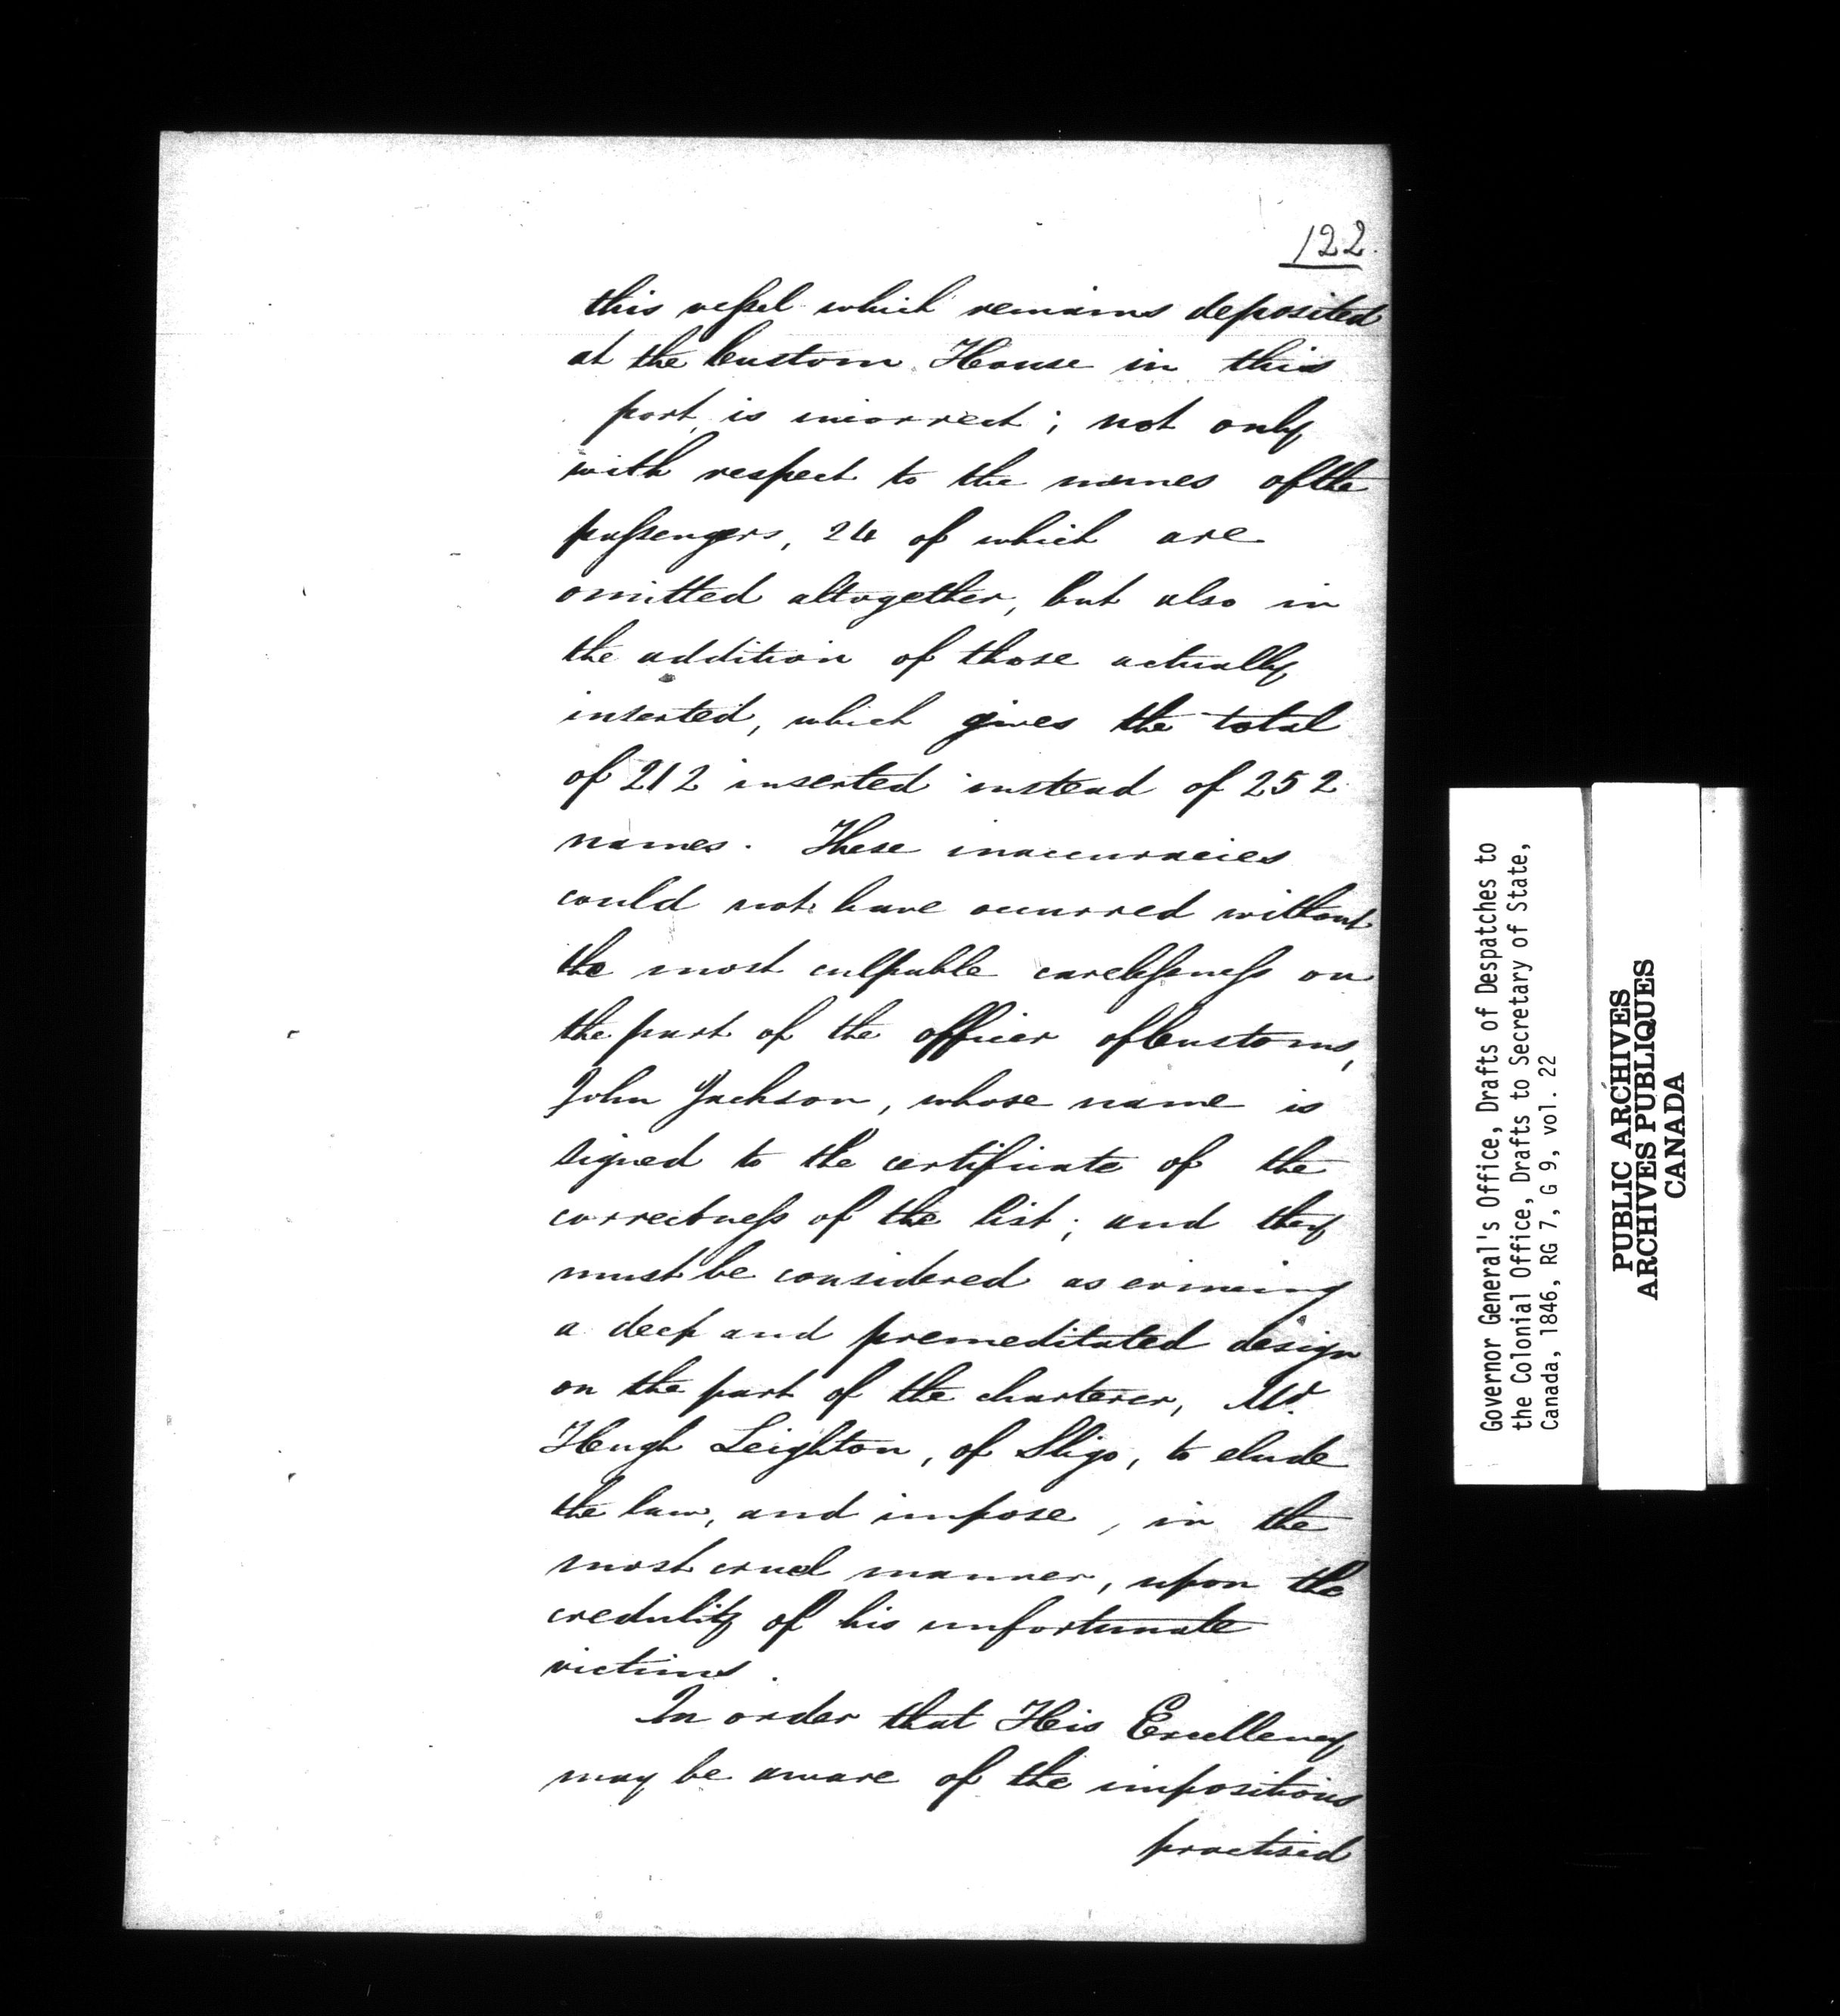 122.
this vessel which remains deposited
at the Custom House in this
port, is incorrect; not only
with respect to the names of the
passengers, 24 of which are
omitted altogether, but also in
the addition of those actually
inserted, which gives the total
of 212 inserted instead of 252
names. These inaccuracies
could not have occurred without
the most culpable carelessness on
the part of the officer of Customs,
John Jackson, whose name is
signed to the certificate of the
correctness of the list; and they
must be considered as evincing
a deep and premeditated design
on the part of the charterer, Mr.
Hugh Leighton, of Sligo, to elude
the law, and impose, in the
most cruel manner, upon the
credulity of his unfortunate
victims.
In order that His Excellency
may be aware of the impositions
practised
Governor General's Office, Drafts of Despatches to
the Colonial Office, Drafts to Secretary of State,
Canada, 1846, RG 7, G 9, vol. 22
PUBLIC ARCHIVES
ARCHIVES PUBLIQUES
CANADA